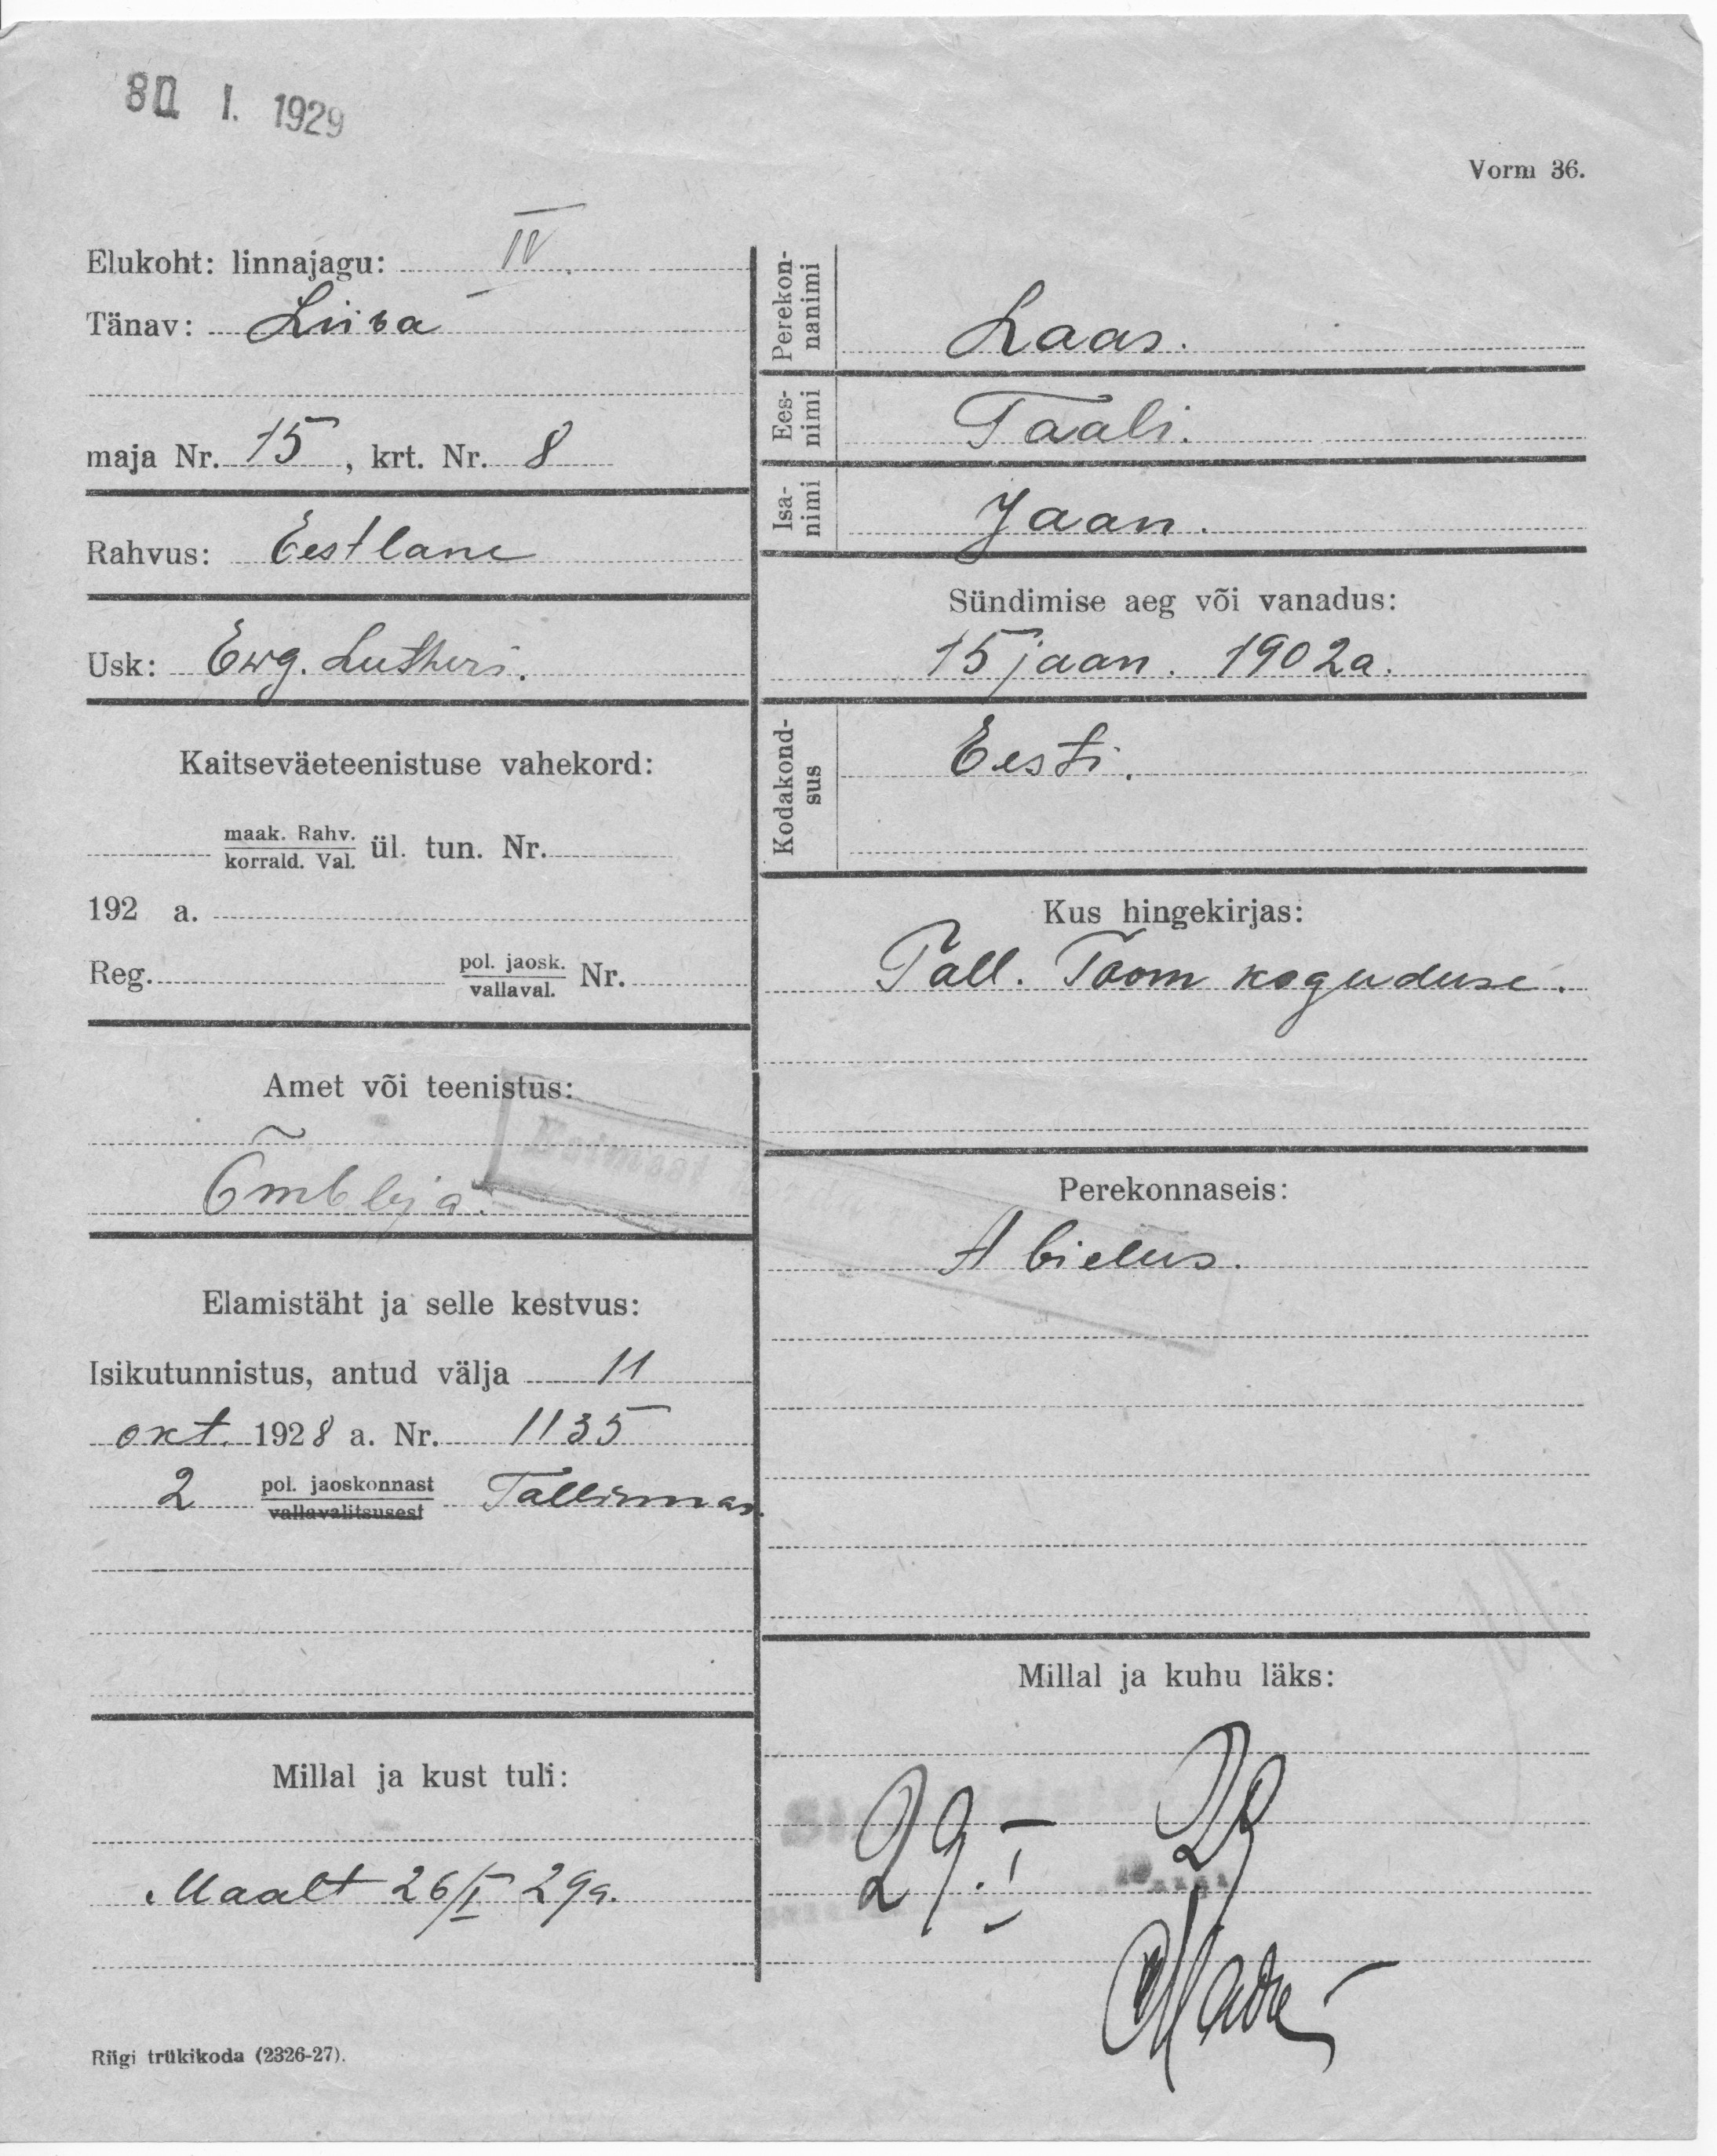 1. 1929
Vorm 36.
Elukoht: linnajagu: IV.
Tänav: Liiva
maja Nr. 15, krt. Nr. 8
Rahvus: Eestlane
Usk: Ewg. Lutheri.
Kaitseväeteenistuse vahekord:
maak. Rahv.
korrald. Val. ül. tun. Nr.
192 a.
Reg. pol. jaosk.
vallaval. Nr.
Amet või teenistus:
Õmbleja.
Elamistäht ja selle kestvus:
Isikutunnistus, antud välja 11
okt. 1928 a. Nr. 1135
2 pol. jaoskonnast Tallinnas.
vallavalitsusest
Millal ja kust tuli:
Maalt 26/I 29a.
Perekon-
nanimi
Laas.
Ees-
nimi
Taali.
Isa-
nimi
Jaan.
Sündimise aeg või vanadus:
15 jaan. 1902a.
Kodakond-
sus
Eesti.
Kus hingekirjas:
Tall. Toom koguduse.
Perekonnaseis:
Abielus.
Millal ja kuhu läks:
29. I 29
Riigi trükikoda (2326-27).